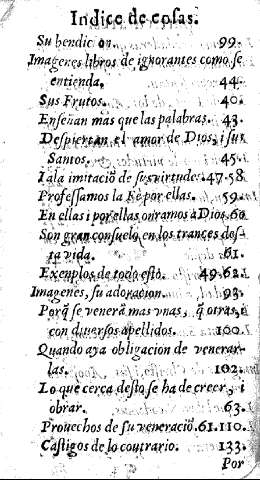 Indice de cosas.
Su bendicion. 99.
Imagenes libros de ignorantes como se
entienda. 44.
Sus Frutos. 40.
Enseñan mas que las palabras. 43.
Despiertan el amor de Dios, i sus
Santos. 45.
I a la imitaciõ de sus virtudes. 47.58.
Professamos la Fe por ellas. 59.
En ellas i por ellas onramos a Dios. 60
Son gran consuelo en los trances des-
ta vida. 61.
Exemplos de todo esto. 49.62.
Imagenes, su adoracion. 93.
Porq̃ se venerã mas vnas, q̃ otras, i
con diuersos apellidos. 100.
Quando aya obligacion de venerar-
las. 102.
Lo que cerca desto se ha de creer, i
obrar. 63.
Prouechos de su veneraciõ. 61.110.
Castigos de lo contrario. 133.
Por